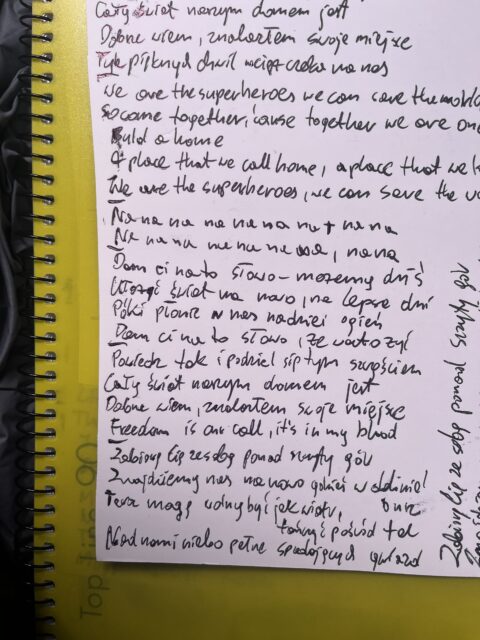 Cały świat naszym domem jest
Dobrze wiem, znalazłem swoje miejsce
Tyle pięknych chwil wciąż czeka na nas
We are the superheroes we can save the world
So come together, 'cause together we are one
Build a home
A place that we call home, a place that we
We are the superheroes, we can save the
Na na na na na na na + na na
Na na na na na na na, na na
Dam ci na to słowo - możemy dziś
świat na nowo, na lepsze dni
Póki płonie w nas nadziei ogień
Dam ci na to słowo, że warto żyć
Powiedz tak i podziel się tym szczęściem
Cały świat naszym domem jest
Dobrze wiem, znalazłem swoje miejsce
Freedom is our call, it's in my blood
Zabiorę Cię ze sobą ponad szczyty gór
Znajdziemy nas na nowo gdzieś w oddali
Teraz mogę wolny być jak wiatr,
tańczyć pośród fal
Nad nami niebo pełne spadających gwiazd
Zabiorę Cię ze sobą ponad szczyty gór
Top